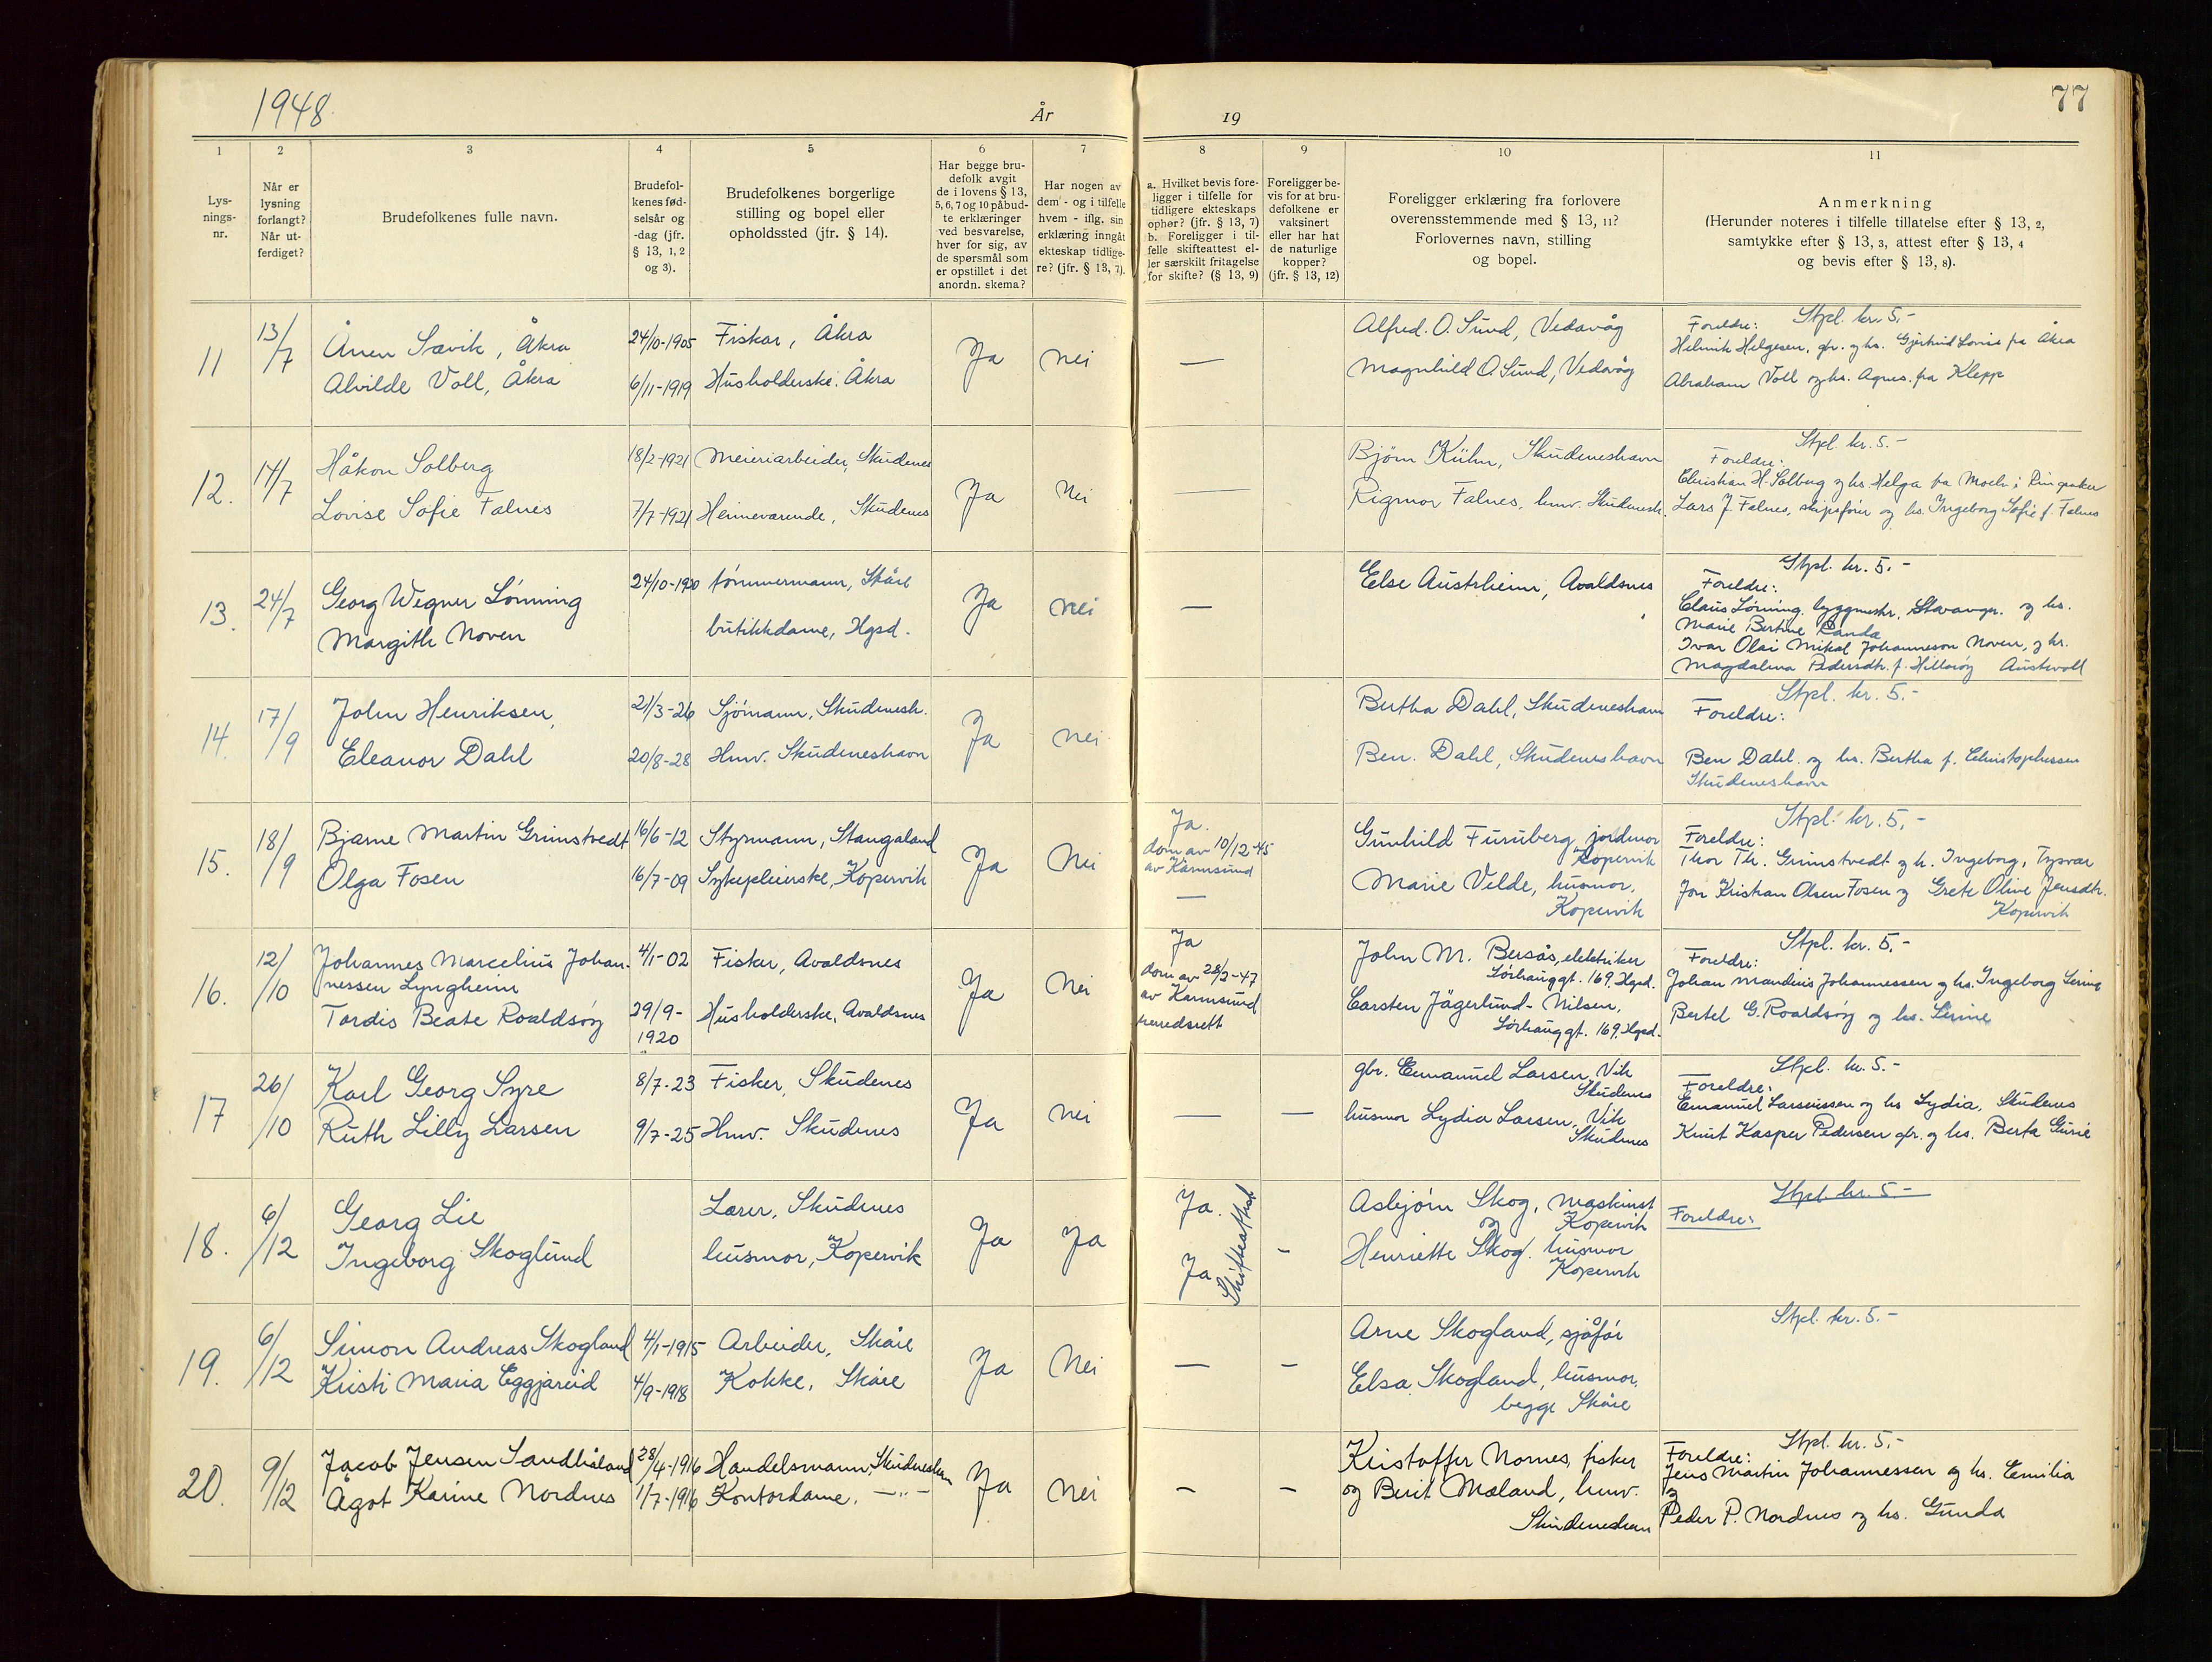 1948. År 19 77
1 2 3 4 5 6 7 8 9 10 11
Lys-
nings-
nr.
Når er
lysning
forlangt?
Når ut-
ferdiget?
Brudefolkenes fulle navn.
Brudefol-
kenes fød-
selsår og
-dag (jfr.
§ 13, 1, 2
og 3).
Brudefolkenes borgerlige
stilling og bopel eller
opholdssted (jfr. § 14).
Har begge bru-
defolk avgit
de i lovens § 13,
5, 6, 7 og 10 påbud-
te erklæringer
ved besvarelse,
hver for sig, av
de spørsmål som
er opstillet i det
anordn. skema?
Har nogen av
dem - og i tilfelle
hvem - iflg. sin
erklæring inngåt
ekteskap tidlige-
re? (jfr. § 13, 7).
a. Hvilket bevis fore-
ligger i tilfelle for
tidligere ekteskaps
ophør? (jfr. § 13, 7)
b. Foreligger i til-
felle skifteattest el-
ler særskilt fritagelse
for skifte? (§ 13, 9)
Foreligger be-
vis for at bru-
defolkene er
vaksinert
eller har hat
de naturlige
kopper?
(jfr. § 13, 12)
Foreligger erklæring fra forlovere
overensstemmende med § 13, 11?
Forlovernes navn, stilling
og bopel.
Anmerkning
(Herunder noteres i tilfelle tillatelse efter § 13, 2,
samtykke efter § 13, 3, attest efter § 13, 4
og bevis efter § 13, 8).
11 13/7
Ånen Sævik, Åkra
Alvilde Voll, Åkra
24/10-1905
6/11-1919
Fiskar, Åkra
Husholderske. Åkra
Ja nei —
Alfred. O. Sund, Vedavåg
Magnhild O. Sund, Vedavåg
Stpl. kr. 5.-
Foreldre:
Helmik Helgesen, gbr. og hs. Gjertrud Lovise fra Åkra
Abraham Voll og hs. Agnes fra Klepp
12. 14/7
Håkon Solberg
Lovise Sofie Falnes
18/2-1921
7/7-1921
Meieriarbeider, Skudenes
Heimeværende, Skudenes
Ja Nei —
Bjørn Kühn, Skudeneshavn
Rigmor Falnes, hmv. Skudenesh.
Stpl. kr. 5.-
Foreldre:
Christian H. Solberg og hs. Helga fra Moelv i Ringsaker
Lars J. Falnes, skipsfører og hs. Ingeborg Sofie f. Falnes
13. 24/7
Georg Wegner Lönning
Margith Noven
24/10-1920
tömmermann, Skåre
butikkdame, Hgsd.
Ja nei —
Else Austrheim, Avaldsnes
Stpl. kr. 5.-
Foreldre:
Claus Lönning, byggmestr. Stavanger. og hs.
Marie Bertine Randa
Ivar Olai Mikal Johanneson Noven, og hs.
Magdalena Pedersdtr. f. Hillesöy Austevoll
14. 17/9
John Henriksen,
Eleanor Dahl
21/3-26
20/8-28
Sjömann, Skudenesh.
Hmv. Skudeneshavn
Ja nei
Bertha Dahl, Skudeneshavn
Ben. Dahl, Skudeneshavn
Stpl. kr. 5.-
Foreldre:
Ben Dahl. og hs. Bertha f. Christophersen
Skudeneshavn
15. 18/9
Bjarne Martin Grimstvedt
Olga Fosen
16/6-12
16/7-09
Styrmann, Stangaland
Sykepleierske, Kopervik
Ja Nei
Ja.
dom av 10/12-45
av Karmsund
—
Gunhild Furuberg, jordmor
Kopervik
Marie Velde, husmor,
Kopervik
Stpl. kr. 5.-
Foreldre:
Thor Th. Grimstvedt og h. Ingeborg, Tysvær
Jon Kristian Olsen Fosen og Grete Oline Jensdtr.
Kopervik
16. 12/10
Johannes Marcelius Johan-
nessen Lyngheim
Tordis Beate Roaldsöy
4/1-02
29/9-
1920
Fisker, Avaldsnes
Husholderske, Avaldsnes
Ja Nei
Ja
dom av 28/2-47
av Karmsund
herredsrett
John M. Bersås, elektriker
Sörhauggt. 169. Hgsd.
Carsten Jägerlund-Nilsen,
Sörhauggt. 169. Hgsd.
Stpl. kr. 5.-
Foreldre:
Johan Mandius Johannessen og hs. Ingeborg Serine
Bertel G. Roaldsöy og hs. Serine
17 26/10
Karl Georg Syre
Ruth Lilly Larsen
8/7-23
9/7-25
Fisker, Skudenes
Hmv. Skudenes
Ja nei — —
gbr. Emanuel Larsen, Vik
Skudenes
husmor Lydia Larsen, Vik
Skudenes
Stpl. kr. 5.-
Foreldre:
Emanuel Larsenssen og hs Lydia, Skudenes
Knut Kasper Pedersen gbr. og hs. Berta Gurie
18. 6/12
Georg Lie
Ingeborg Skoglund
Lærer, Skudenes
husmor, Kopervik
Ja Ja
Ja.
Ja
Skifteattest
-
Asbjörn Skog, maskinist
og Kopervik
Henriette Skog. husmor
Kopervik
Stpl. kr. 5.-
Foreldre:
19. 6/12
Simon Andreas Skogland
Kristi Maria Eggjareid
4/1-1915
4/9-1918
Arbeider, Skåre
Kokke, Skåre
Ja Nei — -
Arne Skogland, sjåför
Elsa Skogland, husmor,
begge Skåre
Stpl. kr. 5.-
20. 9/12
Jacob Jensen Sandhåland
Ågot Karine Nordnes
28/4-1916
1/7-1916
Handelsmann, Skudeneshavn
Kontordame, —"—
Ja nei - -
Kristoffer Nornes, fisker
og Berit Mæland, hmv.
Skudeneshavn
Stpl. kr. 5.-
Foreldre:
Jens Martin Johannessen og hs. Emilia
og
Peder P. Nordnes og hs. Gunda